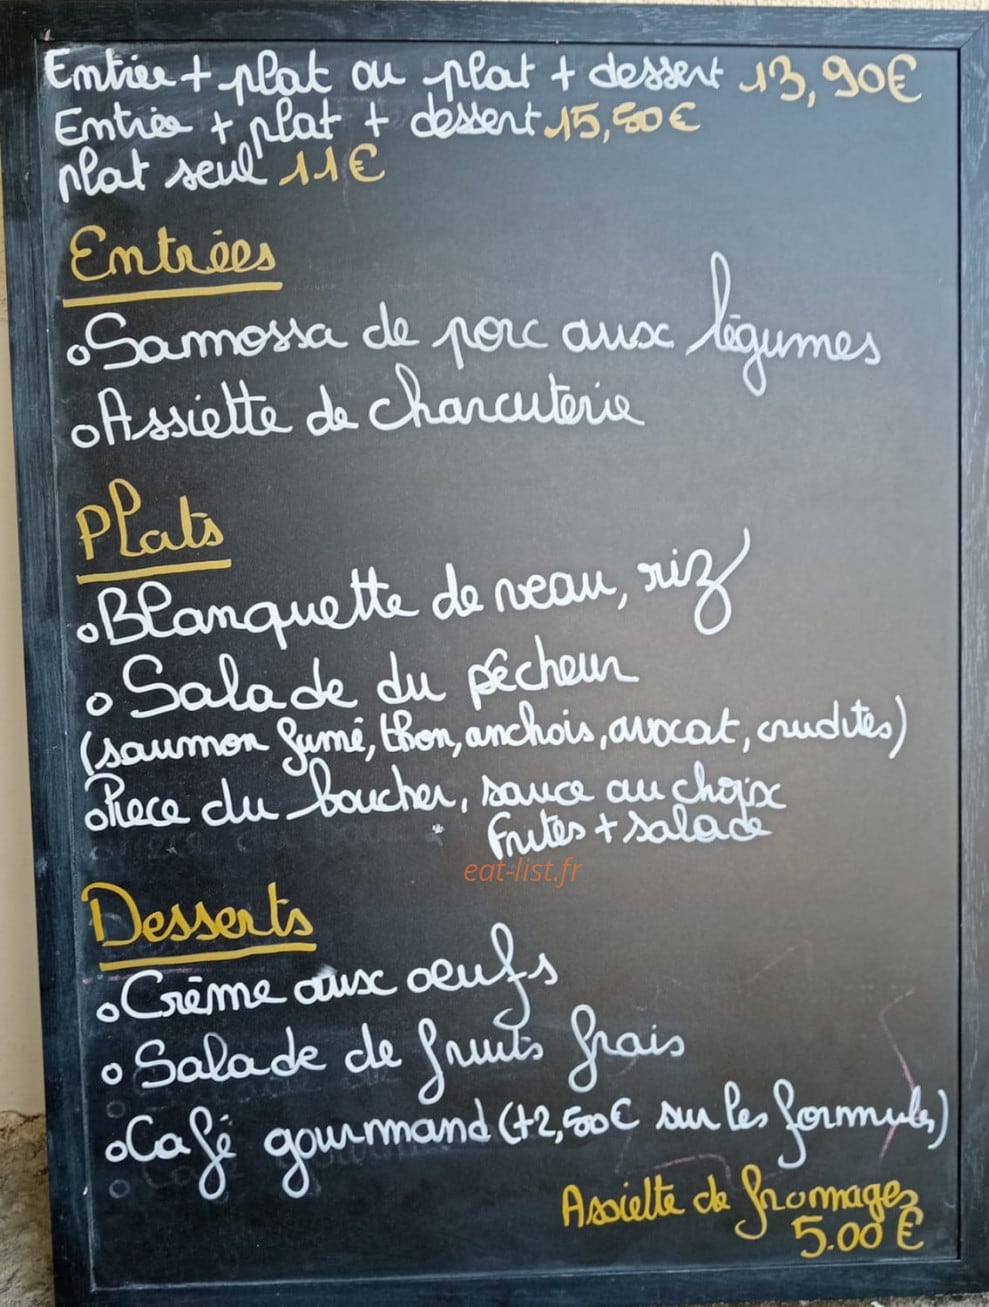 Entrée + plat ou plat + dessert 13,90€
Entrée + plat + dessert 15,50€
plat seul 11€
Entrées
Samossa de porc aux légumes
Assiette de charcuterie
Plats
Blanquette de veau, riz
Salade du pêcheur
(saumon fumé, thon, anchois, avocat, crudités)
Piece du boucher, sauce au choix
Frites + salade
eat-list.fr
Desserts
Crème aux oeufs
Salade de fruits frais
Café gourmand (+2,50€ sur les formules)
Assiette de fromages
5.00€